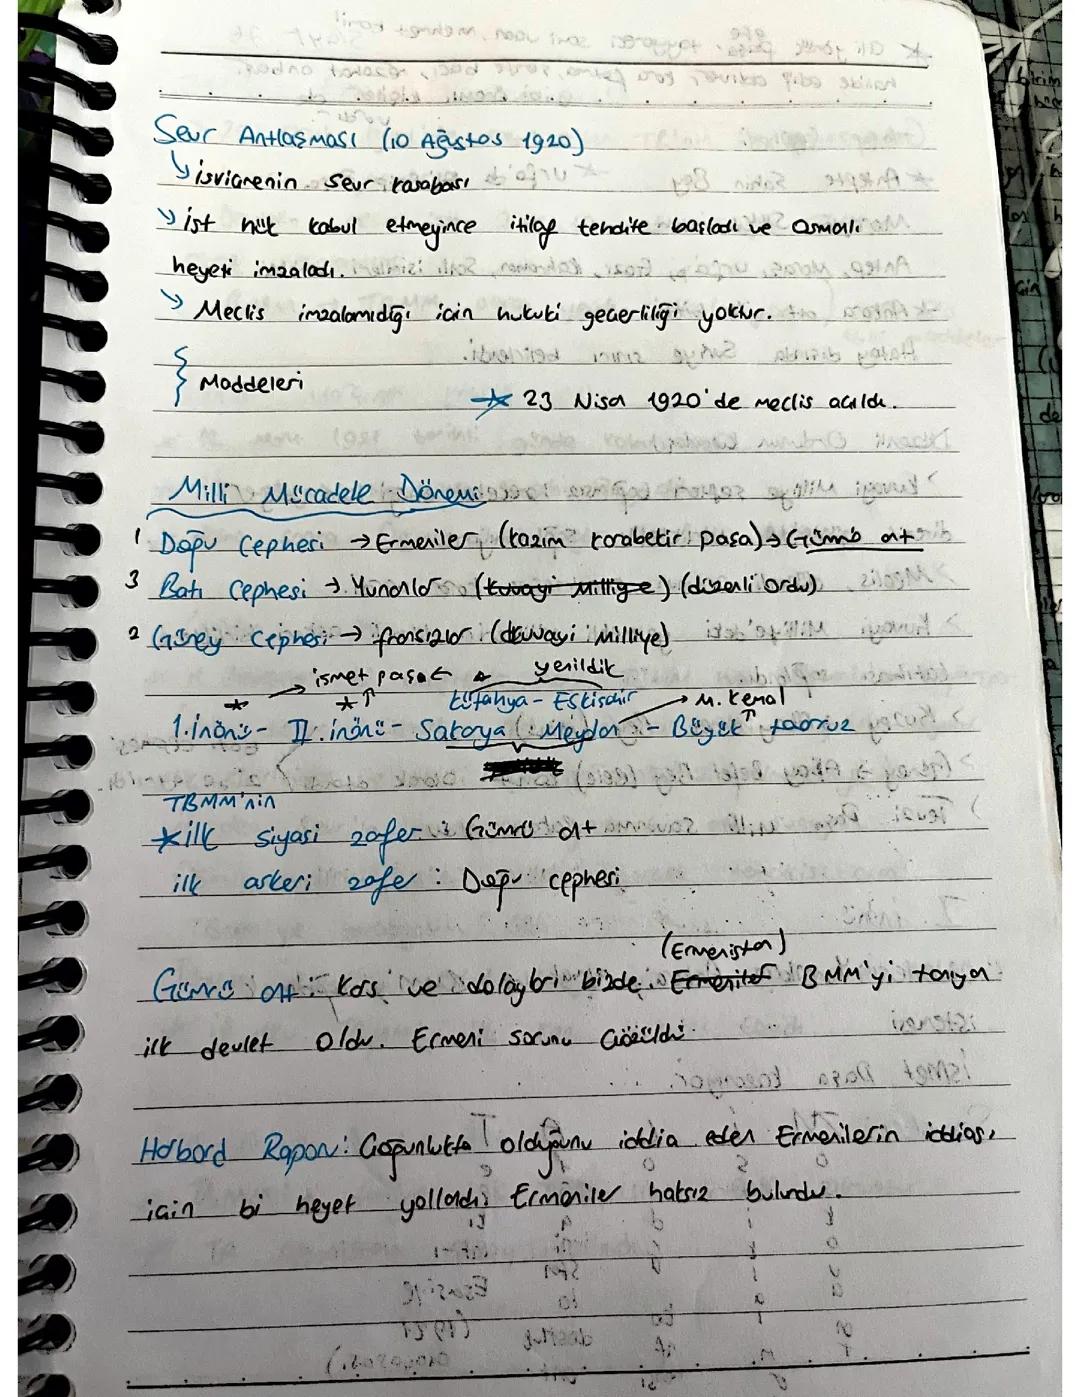 Sevr Antlaşması (10 Ağustos 1920)
↳ isviçrenin Sevr kasabası
↳ ist hük kabul etmeyince itilaf tehdite başladı ve Osmanlı
heyeti imzaladı.
↳ Meclis imzalamıdığı için hukuki geçerliliği yoktur.
Maddeleri
★ 23 Nisan 1920'de meclis açıldı.
Milli Mücadele Dönemi
1 Doğu Cephesi → Ermeniler (Kazım Karabekir paşa) → Gümrü ant
3 Batı Cephesi → Yunanlar (Kuvayi Milliye) (düzenli ordu)
2 Güney Cephesi → fransızlar (Kuvayi Milliye)
ismet paşa yenildik
★ ★ Kütahya - Eskişehir → M. Kemal
1. İnönü - II. inönü - Sakarya Meydan - Büyük taarruz
TBMM'nin
★ ilk siyasi zafer : Gümrü ant
ilk askeri zafer : Doğu cephesi
(Ermenistan)
Gümrü ant : Kars ve dolayları bizde. Ermeniler BMM'yi tanıyan
ilk devlet oldu. Ermeni sorunu Çözüldü.
Harbord Raporu: Çoğunlukta olduğunu iddia eden Ermenilerin iddiası
için bi heyet yollandı Ermeniler haksız bulundu.